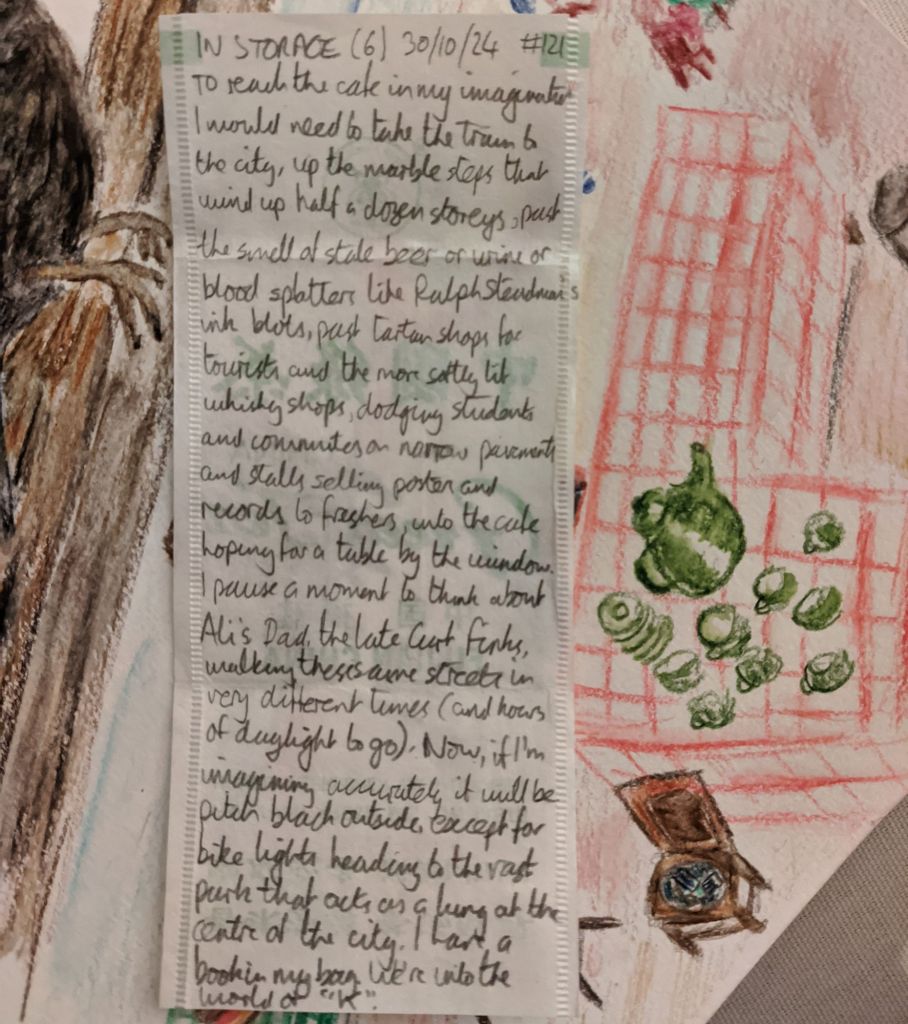 IN STORAGE (6) 30/10/24 #121
To reach the cafe in my imagination
I would need to take the train to
the city, up the marble steps that
wind up half a dozen storeys, past
the smell of stale beer or urine or
blood splatters like Ralph Steadman's
ink blots, past tartan shops for
tourists and the more softly lit
whisky shops, dodging students
and commuters on narrow pavements
and stalls selling posters and
records to freshers, into the cafe
hoping for a table by the window.
I pause a moment to think about
Ali's Dad, the late Curt
walking these same streets in
very different times (and hours
of daylight to go). Now, if I'm
imagining accurately it will be
pitch black outside, except for
bike lights heading to the vast
park that acts as a lung at the
centre of the city. I have a
book in my bag. We're into the
world of "K".